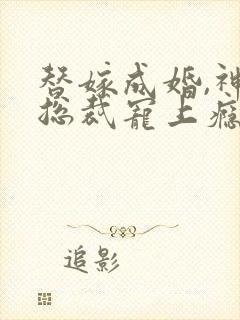 替嫁成婚,神
总裁宠上瘾
追影